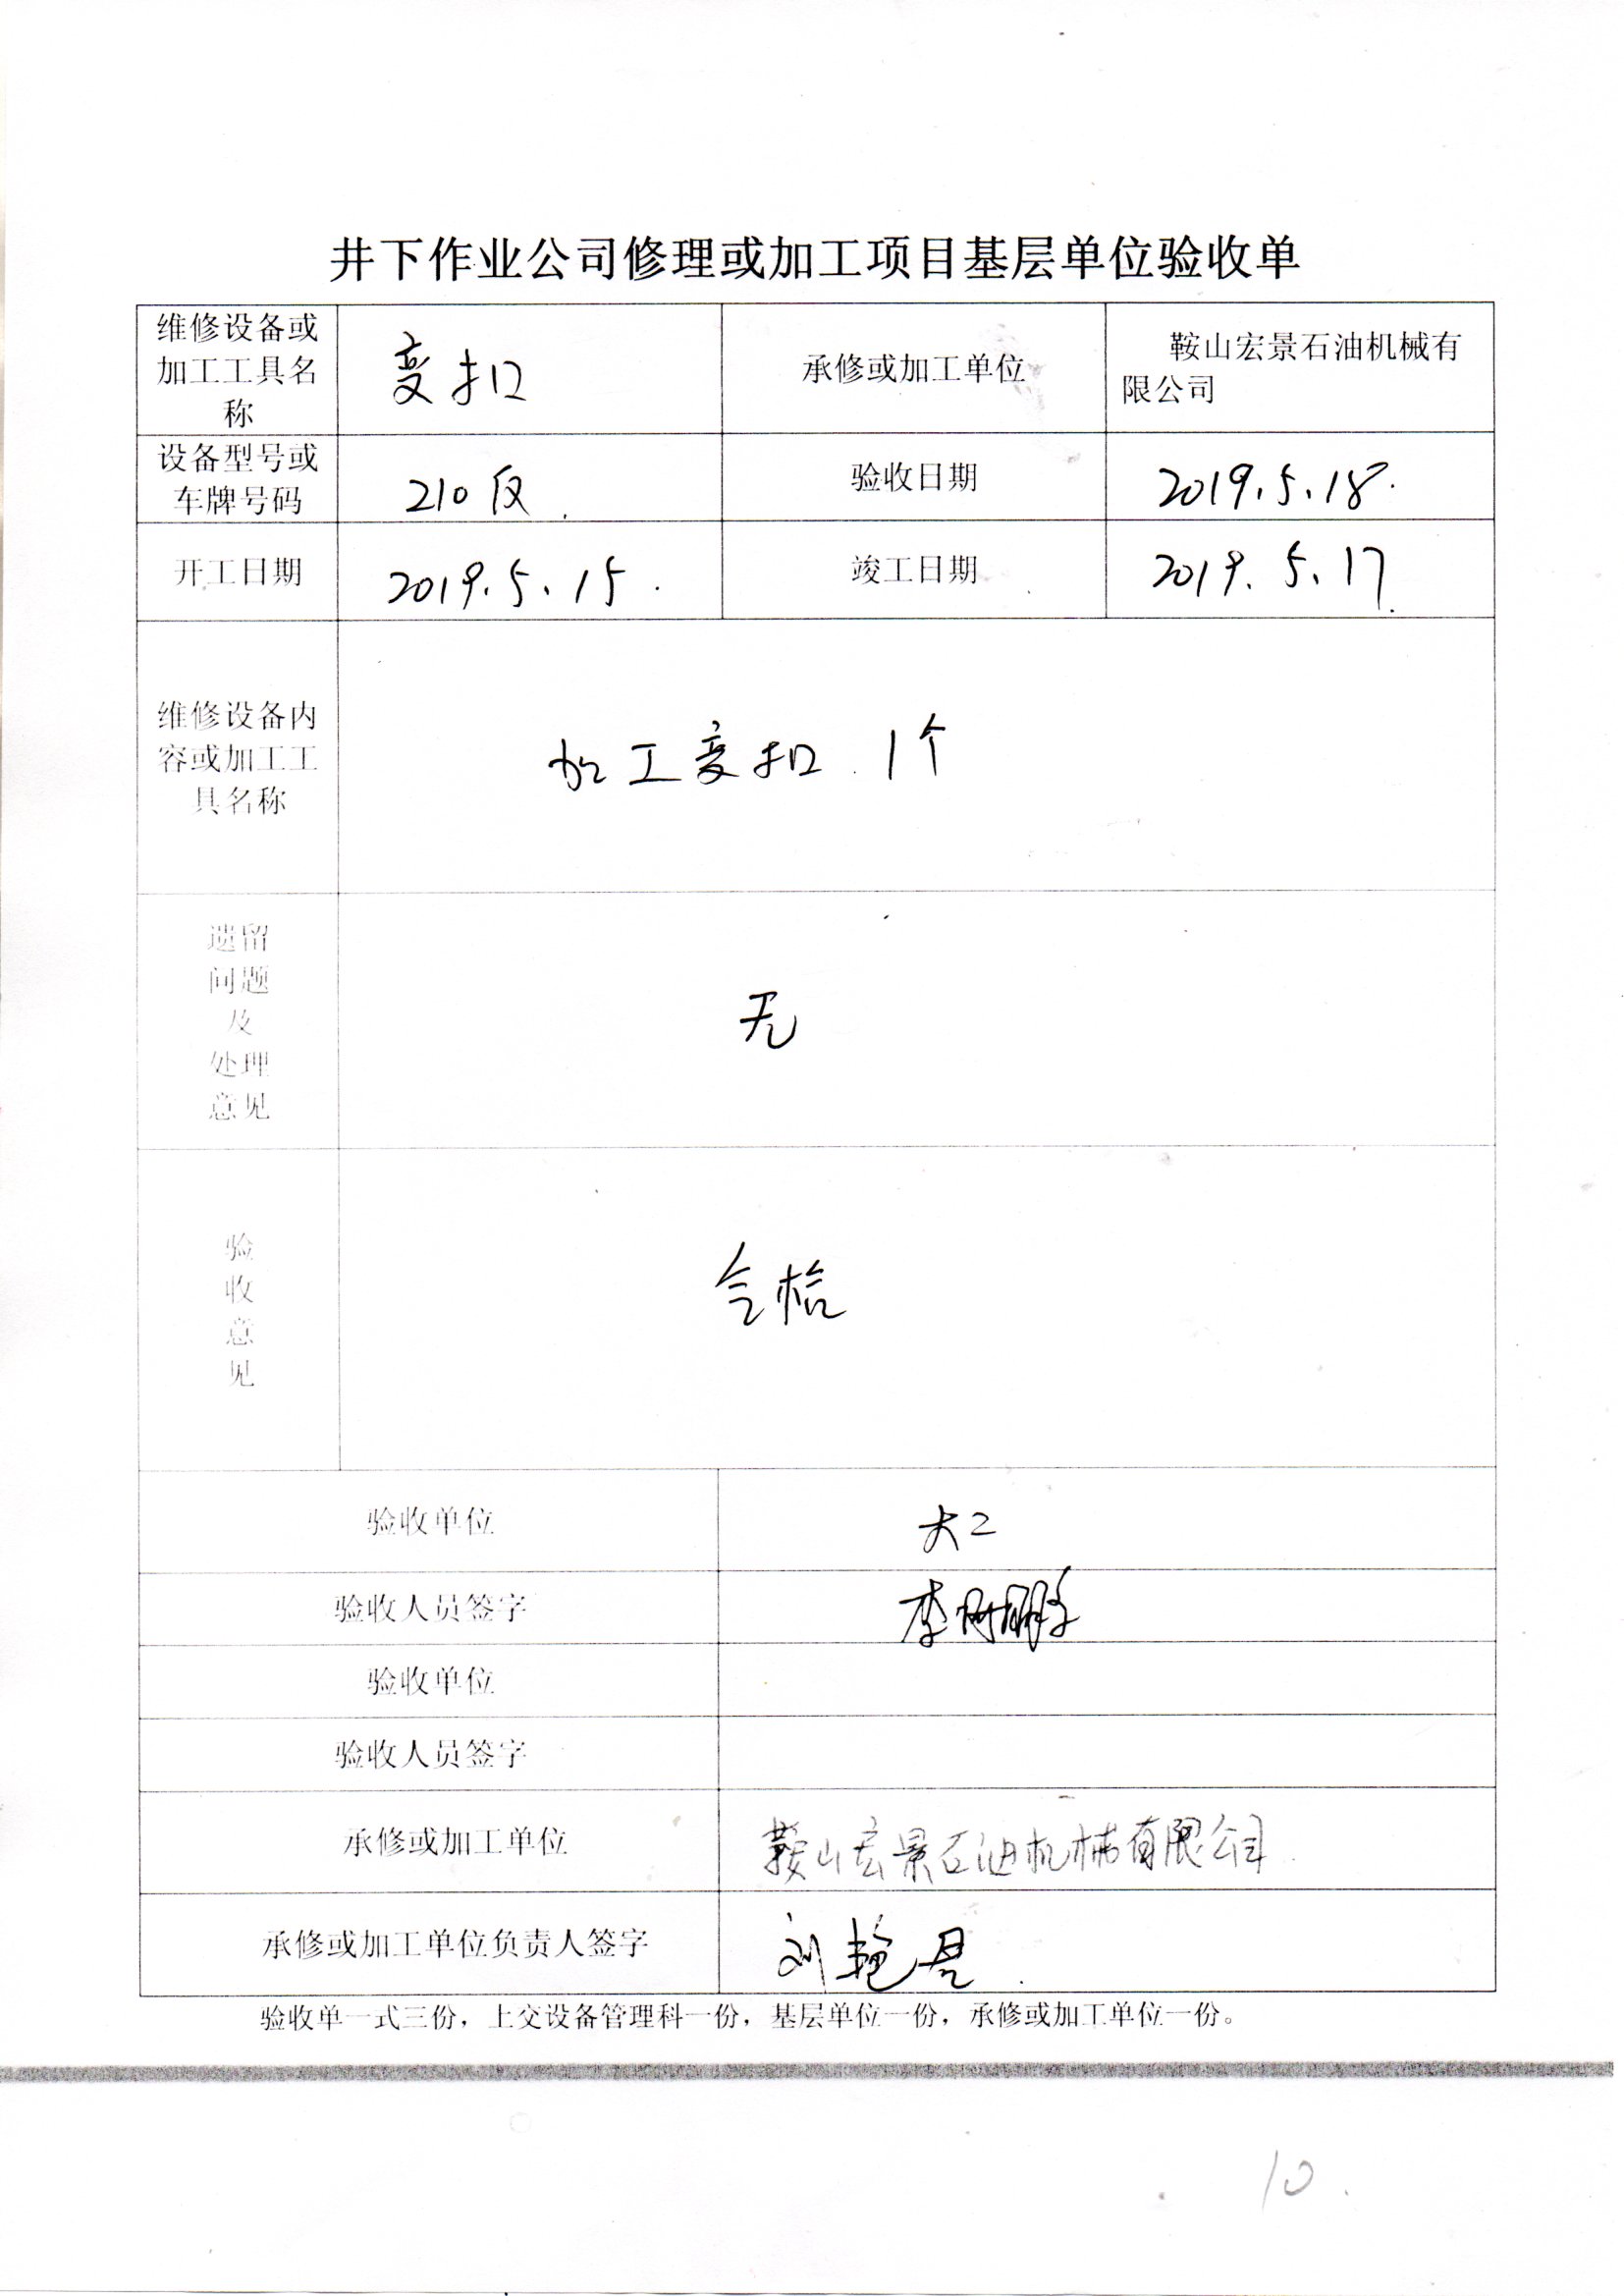 井下作业公司修理或加工项目基层单位验收单
维修设备或
加工工具名
称
变扣
承修或加工单位
鞍山宏景石油机械有
限公司
设备型号或
车牌号码
210反
验收日期
2019.5.18.
开工日期
2019.5.15.
竣工日期
2019.5.17.
维修设备内
容或加工工
具名称
加工变扣 1个
遗留
问题
及
处理
意见
无
验
收
意
见
合格
验收单位
大2
验收人员签字
李树鹏
验收单位
验收人员签字
承修或加工单位
鞍山宏景石油机械有限公司
承修或加工单位负责人签字
刘艳君
验收单一式三份，上交设备管理科一份，基层单位一份，承修或加工单位一份。
10.